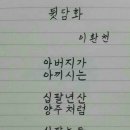 뒷담화
이환천
아버지가
아끼시는
십팔년산
양주처럼